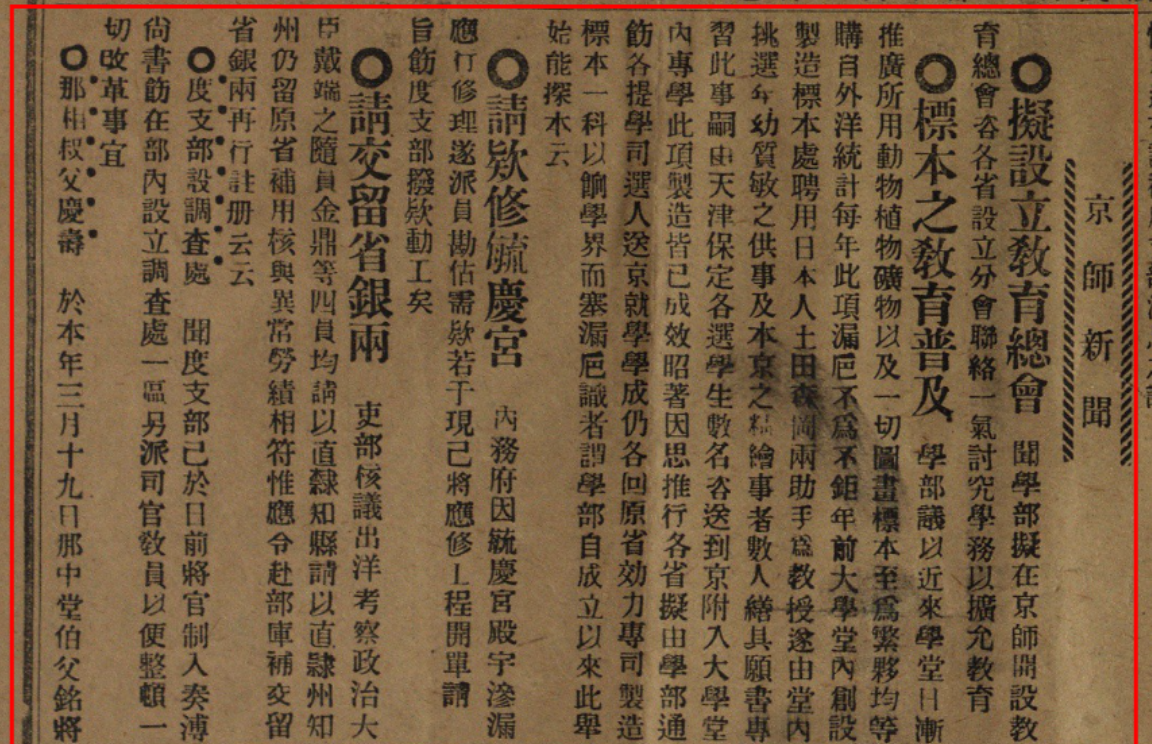 京師新聞
○擬設立敎育總會　聞學部擬在京師開設敎
育總會咨各省設立分會聯絡一氣討究學務以擴允敎育
○標本之敎育普及　學部議以近來學堂日漸
推廣所用動物植物礦物以及一切圖畫標本至爲繁夥均等
購自外洋統計每年此項漏巵不爲不鉅年前大學堂內創設
製造標本處聘用日本人土田森岡兩助手爲教授遂由堂內
挑選年幼質敏之供事及本京之精繪事者數人繕具願書專
習此事嗣由天津保定各選學生數名咨送到京附入大學堂
內專學此項製造皆已成效昭著因思推行各省擬由學部通
飭各提學司選人送京就學學成仍各回原省効力專司製造
標本一科以餉學界而塞漏巵識者謂學部自成立以來此舉
始能探本云
○請欵修毓慶宮　內務府因毓慶宮殿宇滲漏
應行修理遂派員勘估需欵若干現已將應修工程開單請
旨飭度支部撥欵動工矣
○請交留省銀兩　吏部核議出洋考察政治大
臣戴端之隨員金鼎等四員均請以直隸知縣請以直隸州知
州仍留原省補用核與異常勞績相符惟應令赴部庫補交留
省銀兩再行註册云云
○度支部設調查處　聞度支部已於日前將官制入奏溥
尙書飭在部內設立調查處一區另派司官敎員以便整頓一
切改革事宜
○那相叔父慶壽　於本年三月十九日那中堂伯父銘將